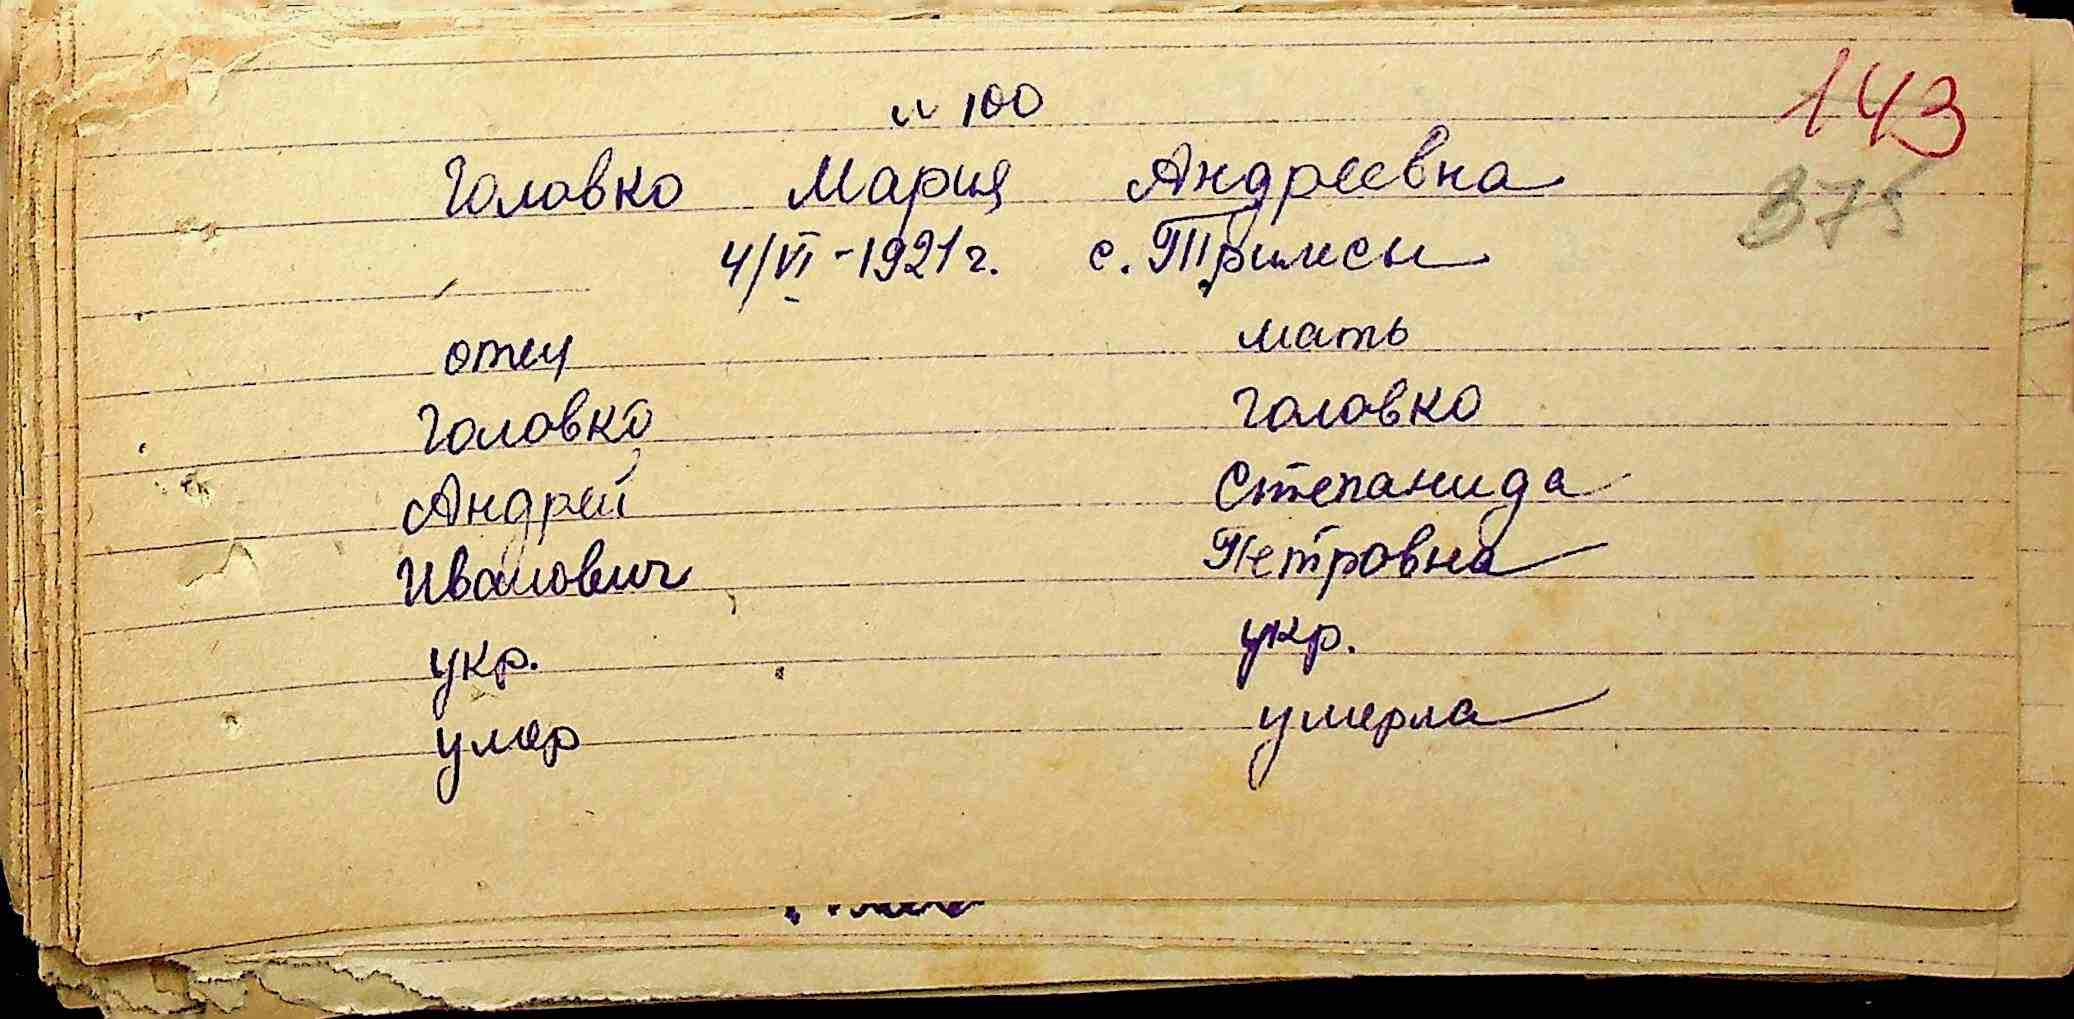 143
№ 100
Головко Мария Андреевна
375
4/VI-1921г. с. Тримсы
отец мать
Головко Головко
Андрей Степанида
Иванович Петровна
укр. укр.
умер умерла